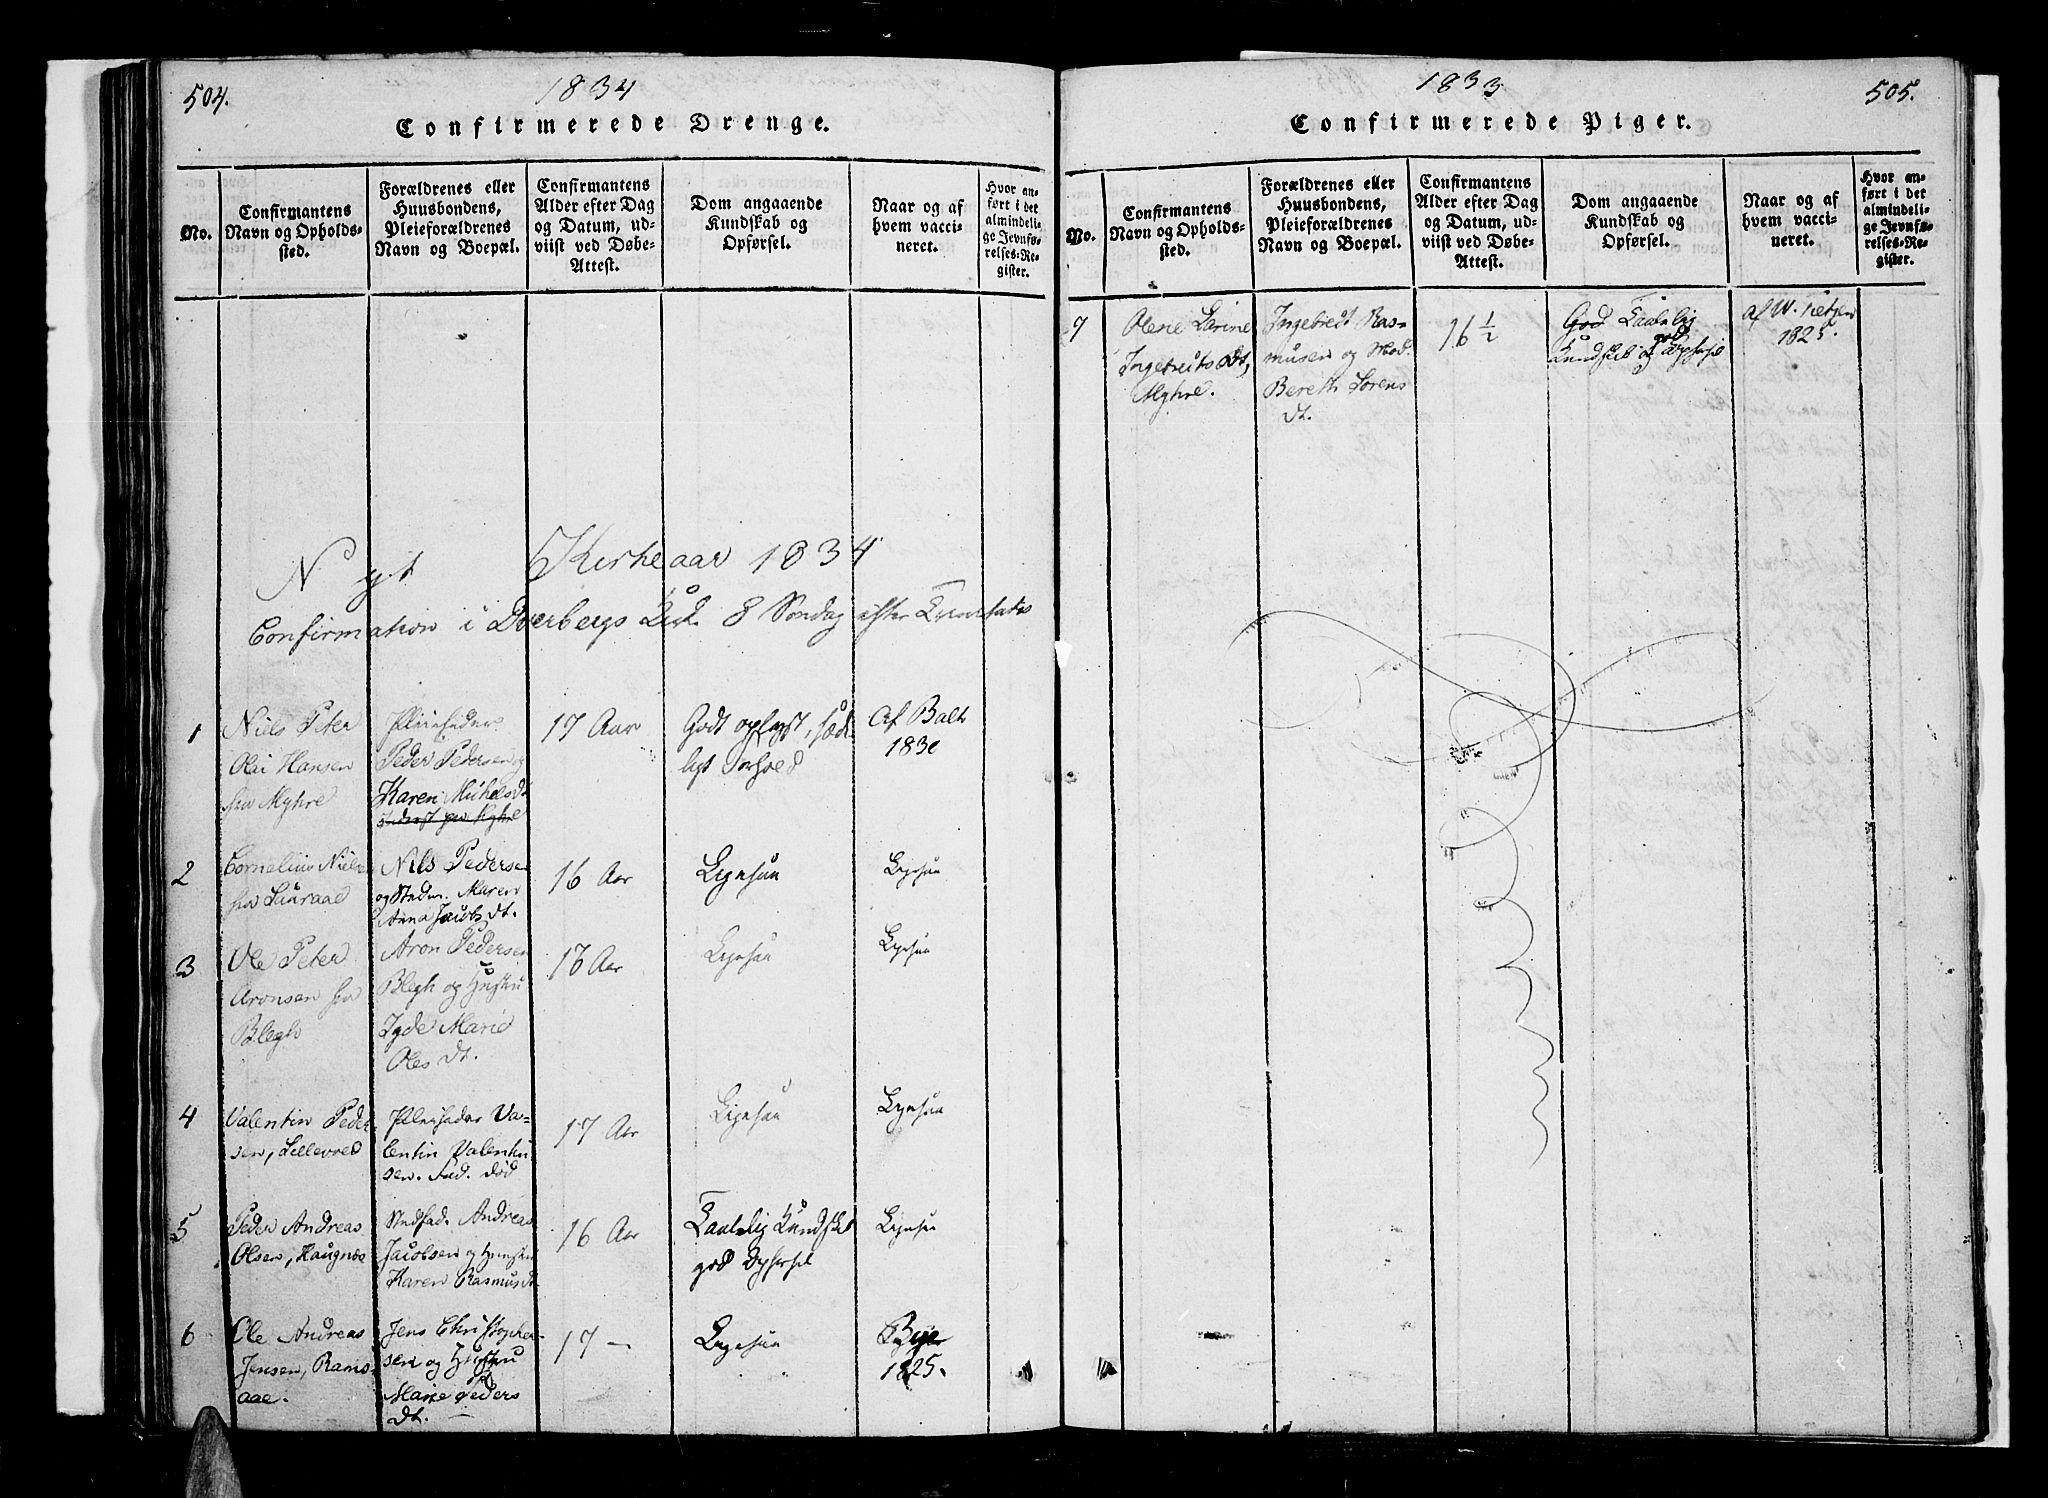 504.
1834
Confirmerede Drenge.
No.
Confirmantens
Navn og Opholds-
sted.
Forældrenes eller
Huusbondens,
Pleieforældrenes
Navn og Boepæl.
Confirmantens
Alder efter Dag
og Datum, ud-
viist ved Døbe-
Attest.
Dom angaaende
Kundskab og
Opførsel.
Naar og af
hvem vacci-
neret.
Hvor an-
ført i det
almindeli-
ge Jevnfø-
relses-Re-
gister.
Nyt Kirkeaar 1834
Confirmation i Dverbergs Kirk. 8 Søndag efter Trinitatis
1
Niels Peter
Olai Hansen
fra Myhre
Pleiefader
Peder Pedersen og
Karen Michelsdt
17 Aar
Godt oplyst, sæde
ligt Forhold
Af Balt
1830
2
Cornelius Niels
fra Sauraae
Nils Pedersen
og Stedm. Maren
Anna Jacobsdt.
16 Aar
Ligesaa
Ligesaa
3
Ole Peter
Aronsen fra
Blegh
Aron Pedersen
Blegh og Hustru
Marie
Olesdt.
16 Aar
Ligesaa
Ligesaa
4
Valentin Peder
sen, Lillevred
Pleiefader Va-
lentin Valentin
sen. Fad. død
17 Aar
Ligesaa
Ligesaa
5
Peder Andreas
Olsen, Haugnæs
Stedfad. Andreas
Jacobsen og Hustru
Karen Rasmusdt.
16 Aar
Taalelig Kundskab
god Opførsel
Ligesaa
6
Ole Andreas
Jensen, Rams-
aae.
Jens Christopher-
sen og Hustru
Marie Peders
dt. —
17 —
Ligesaa
Bye
1825.
1833
505.
Confirmerede Piger.
No.
Confirmantens
Navn og Opholds-
sted.
Forældrenes eller
Huusbondens,
Pleieforældrenes
Navn og Boepæl.
Confirmantens
Alder efter Dag
og Datum, ud-
viist ved Døbe-
Attest.
Dom angaaende
Kundskab og
Opførsel.
Naar og af
hvem vacci-
neret.
Hvor an-
ført i det
almindeli-
ge Jevnfø-
relses-Re-
gister.
7
Olene Larine
Ingebretsdt,
Myhre.
Ingebret Ras-
musen og Mod.
Bereth Sørens
dt.
16 1/2
God Taalelig
Kundskab og god Opførsel
af
1825.